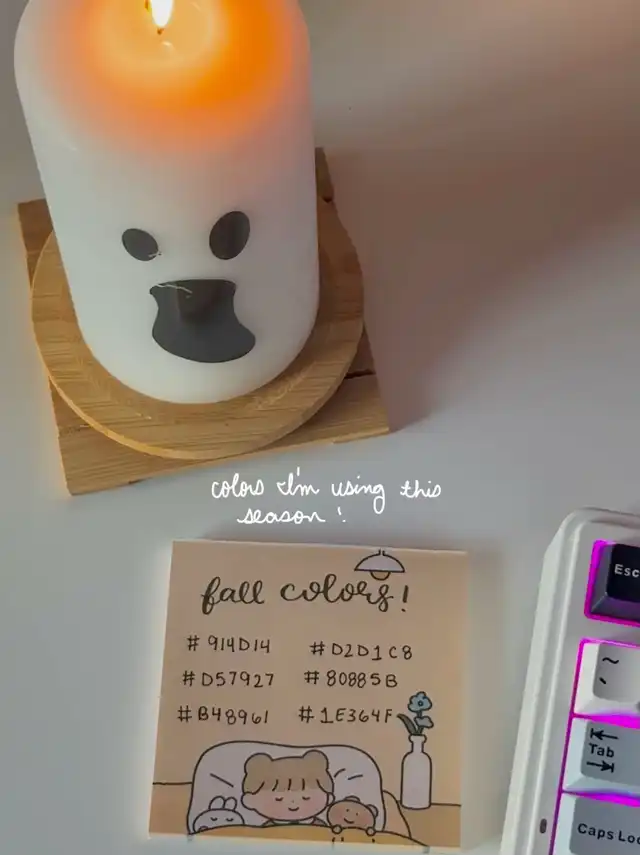 colors I'm using this
season!
fall colors!
#914D14 #D2D1C8
#D57927 #80885B
#B48961 #1E364F
Esc
~
`
Tab
Caps Loc